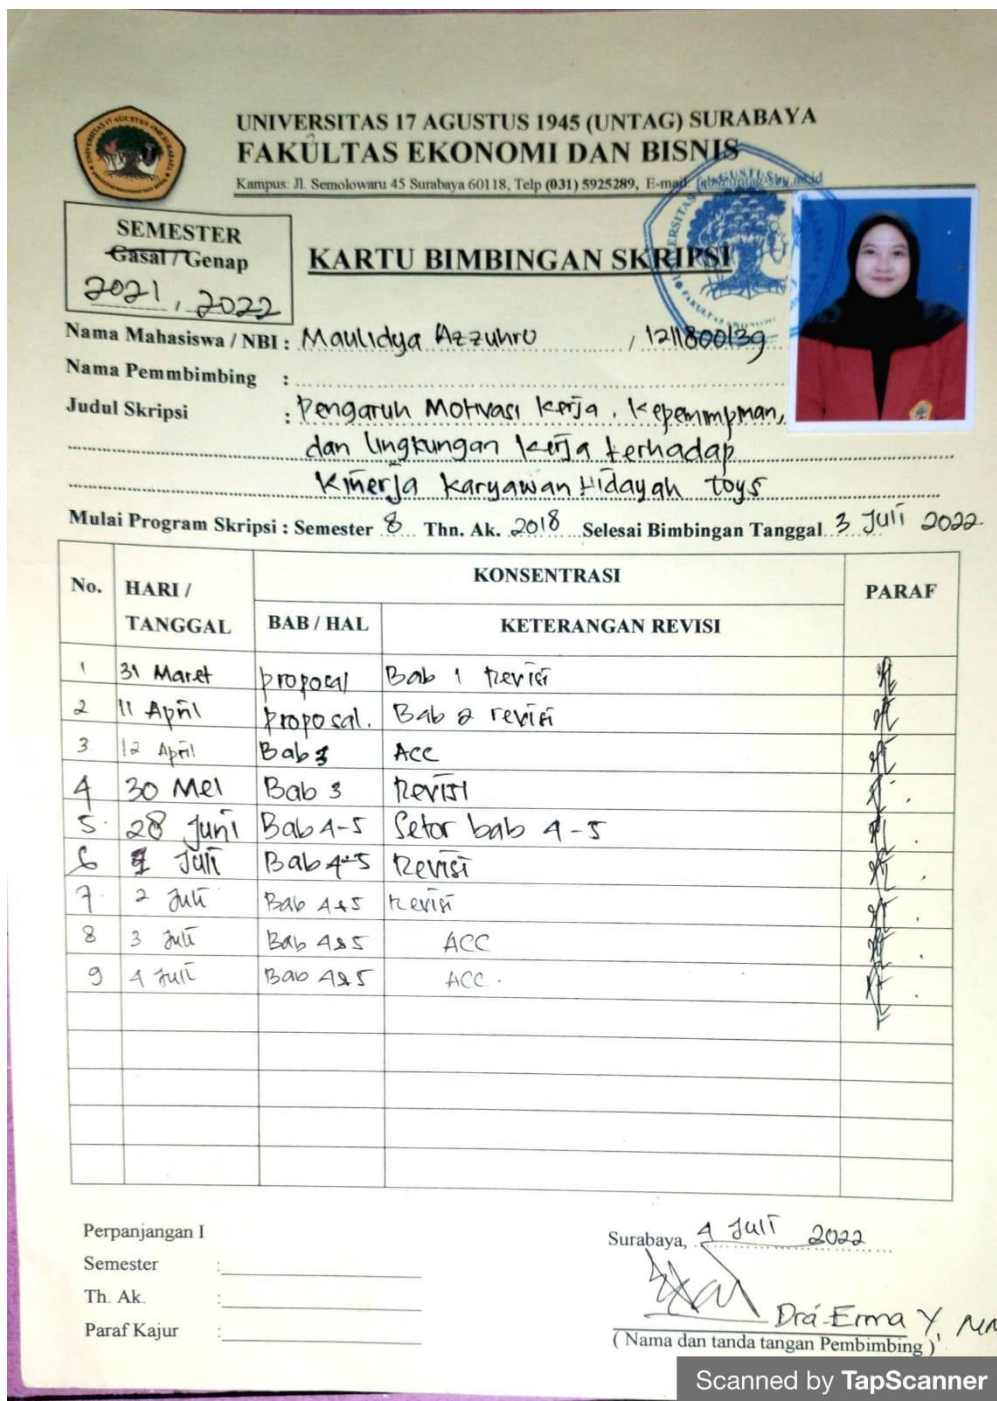 UNIVERSITAS 17 AGUSTUS 1945 (UNTAG) SURABAYA
FAKULTAS EKONOMI DAN BISNIS
Kampus: Jl. Semolowaru 45 Surabaya 60118, Telp (031) 5925289, E-mail:
SEMESTER
Gasal / Genap
2021, 2022
KARTU BIMBINGAN SKRIPSI
Nama Mahasiswa / NBI : Maulidya Azzuhro, 1211800139
Nama Pemmbimbing :
Judul Skripsi : Pengaruh Motivasi Kerja, Kepemimpinan,
dan lingkungan kerja terhadap
Kinerja Karyawan Hidayah toys
Mulai Program Skripsi : Semester 8 Thn. Ak. 2018 Selesai Bimbingan Tanggal 3 Juli 2022
No. HARI / TANGGAL KONSENTRASI PARAF
BAB / HAL KETERANGAN REVISI
1 31 Maret proposal Bab 1 Revisi
2 11 April proposal. Bab 2 revisi
3 12 April Bab 3 ACC
4 30 Mei Bab 3 Revisi
5. 28 Juni Bab 4-5 Setor bab 4-5
6 1 Juli Bab 4-5 Revisi
7. 2 Juli Bab 4&5 Revisi
8 3 Juli Bab 4&5 ACC
9 4 Juli Bab 4&5 ACC.
Perpanjangan I
Semester :
Th. Ak. :
Paraf Kajur :
Surabaya, 4 Juli 2022
Dra Erma Y, MM
( Nama dan tanda tangan Pembimbing )
Scanned by TapScanner